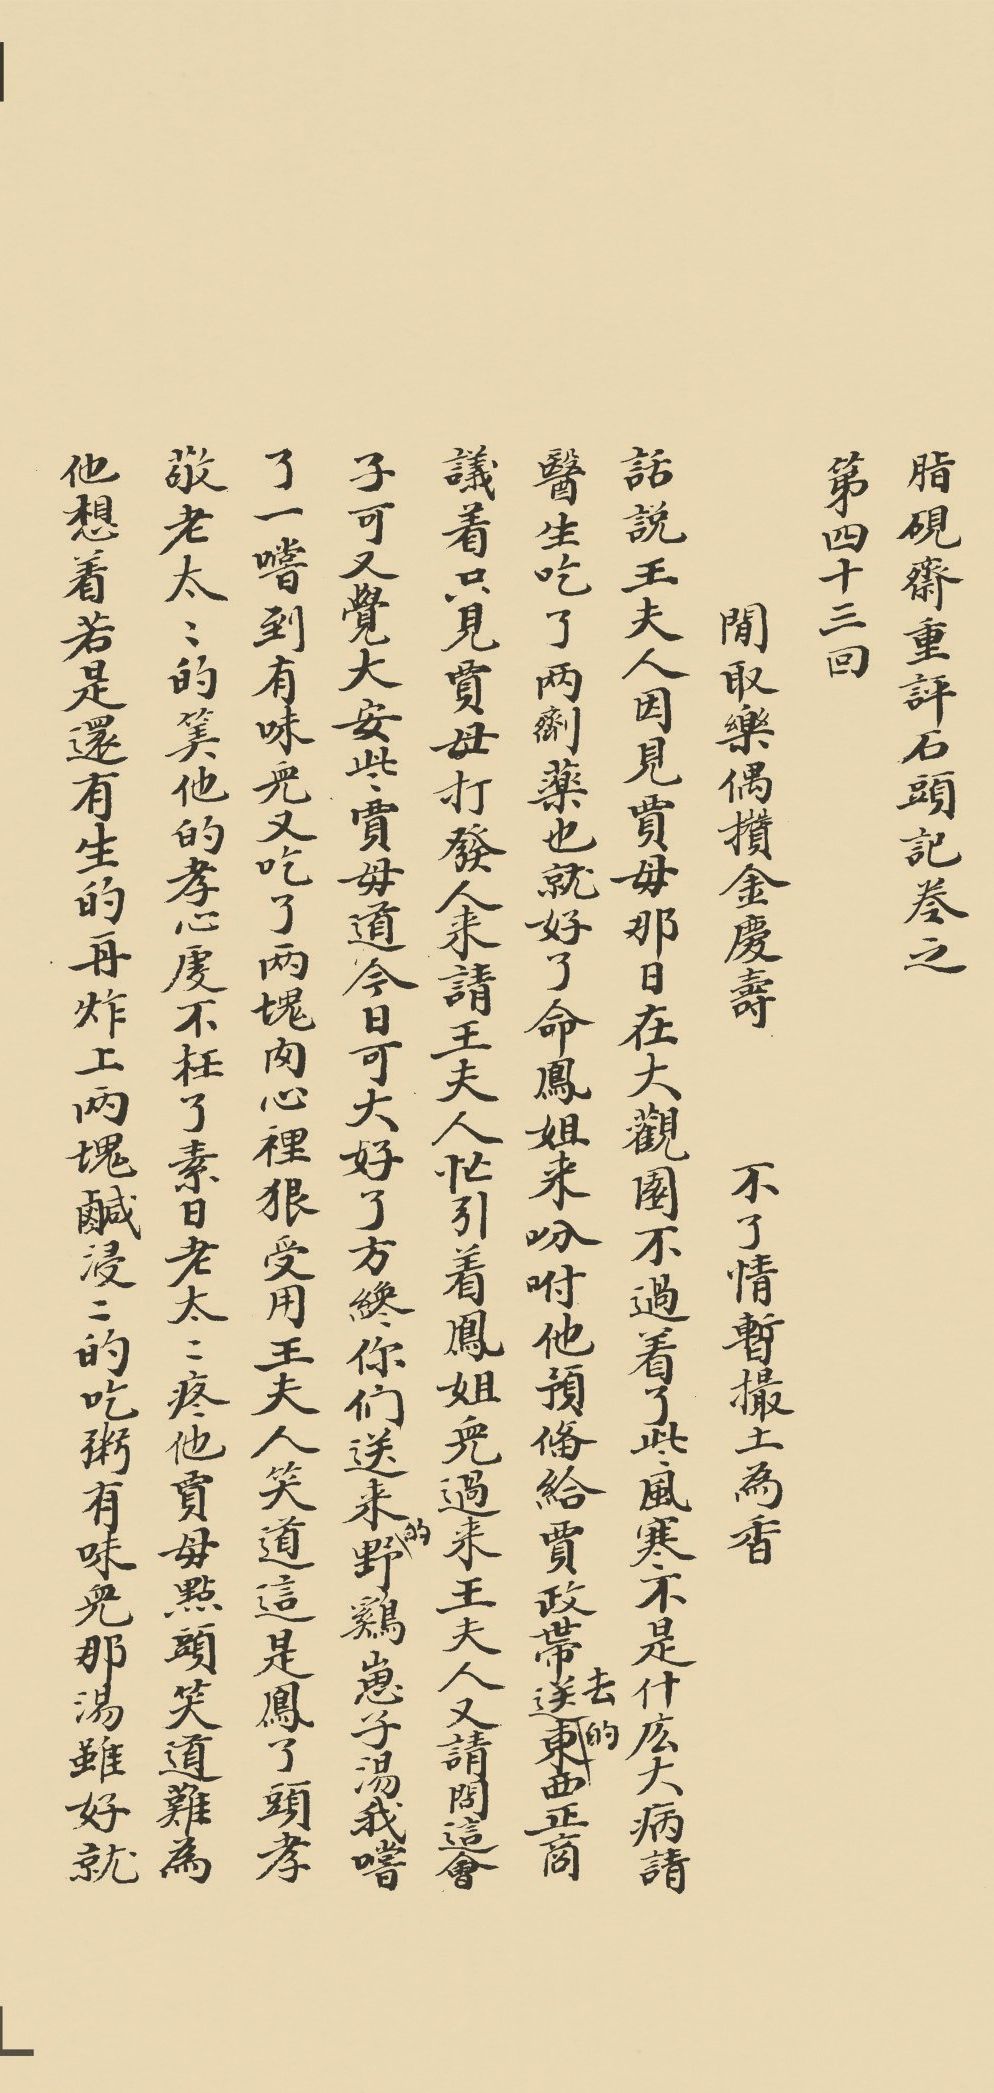 脂硯齋重評石頭記卷之
第四十三回
閒取樂偶攢金慶壽　不了情暫撮土為香
話説王夫人因見賈母那日在大觀園不過着了些風寒不是什庅大病請
醫生吃了两劑薬也就好了命鳳姐来吩咐他預俻給賈政帯送去的東西正商
議着只見賈母打發人来請王夫人忙引着鳳姐兒過来王夫人又請問這會
子可又覺大安些賈母道今日可大好了方纔你们送来的野鷄崽子湯我嚐
了一嚐到有味兒又吃了两塊肉心裡狠受用王夫人笑道這是鳳了頭孝
敬老太〻的筭他的孝心虔不枉了素日老太〻疼他賈母點頭笑道難為
他想着若是還有生的再炸上两塊鹹浸〻的吃粥有味兒那湯雖好就